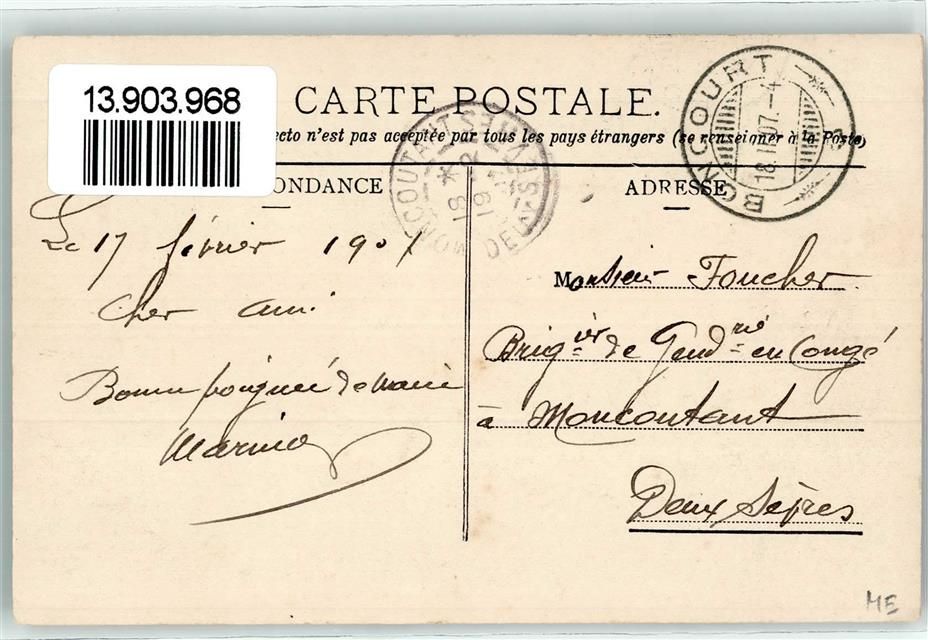 13.903.968
CARTE POSTALE.
ecto n'est pas acceptée par tous les pays étrangers (se renseigner à la Poste)
ONDANCE
ADRESSE
BONCOURT
18.II.07.-4
MONCOUTANT
DEUX-SÈVRES
18
19
Le 17 février 1907
Cher ami
Bonne poignée de main
Monsieur Foucher
Brigier de Gendrie en Congé
à Moncoutant
Deux Sèvres
ME